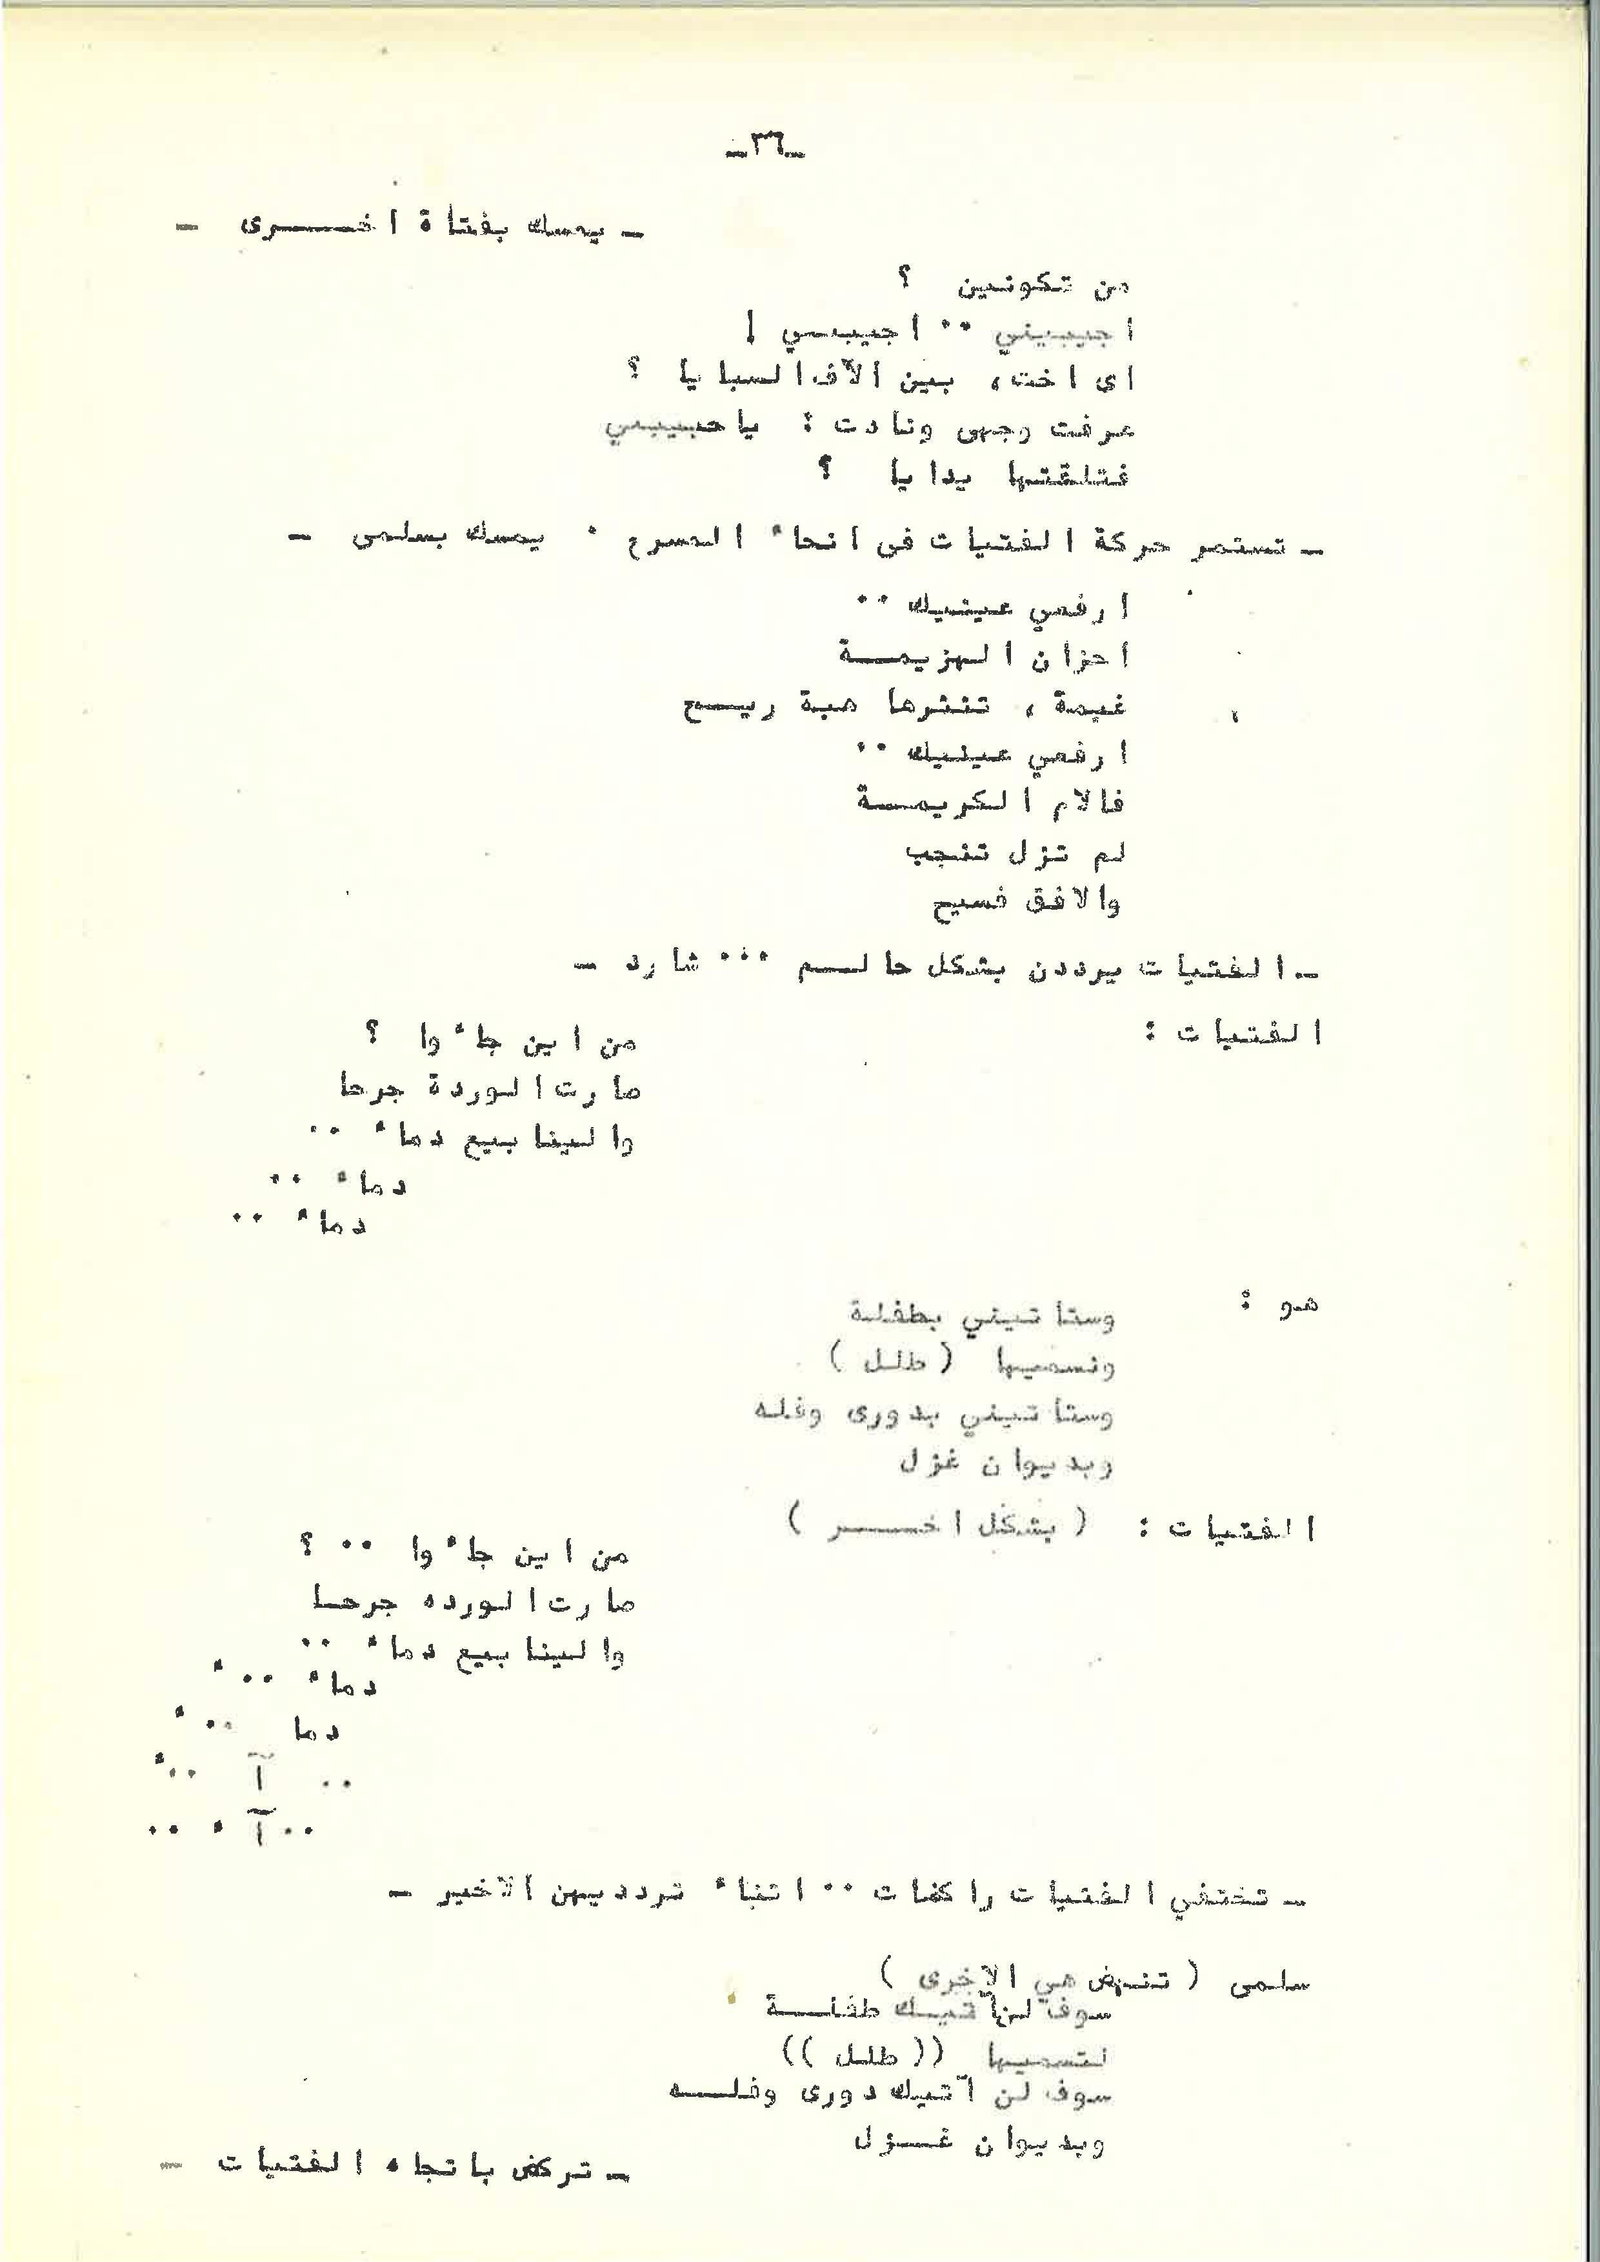 -٣٦-
- يمسك بفتاة اخـــرى -
من تكونين ؟
اجيبيني ٠٠ اجيبــي !
اى اخت، بين الآف السبايا ؟
عرفت وجهى ونادت : ياحبيبـي
فتلقتها يدايا ؟
- تستمر حركة الفتيات فى انحاء المسرح ٠ يمسك بسلمى -
ارفعي عينيك ٠٠
احزان الهزيمــة
غيمة ، تنثرها هبة ريــح
ارفعي عينيك ٠٠
فالام الكريمــة
لم تزل تنجب
والافق فسيح
- الفتيات يرددن بشكل حالــم ٠٠٠ شارد -
الفتيات :
من اين جاءوا ؟
صارت الوردة جرحا
والينابيع دماء ٠٠
دماء ٠٠
دماء ٠٠
هو :
وستاتيني بطفلة
ونسميها ( طلل )
وستاتيني بدورى وفله
وبديوان غزل
الفتيات : ( بشكل اخـــر )
من اين جاءوا ٠٠ ؟
صارت الورده جرحـا
والينابيع دماء ٠٠
دماء ٠٠ ء
دما ٠٠ ء
٠٠ آ ٠٠ ء
٠٠ آ ء ٠٠
- تختفي الفتيات راكضات ٠٠ اثناء ترديدهن الاخير -
سلمى ( تنهض هي الاخرى )
سوف لن آتيـك طفلــة
لتسميها (( طلل ))
سوف لن آتيك دورى وفلــه
وبديوان غــزل
- تركض باتجاه الفتيات -